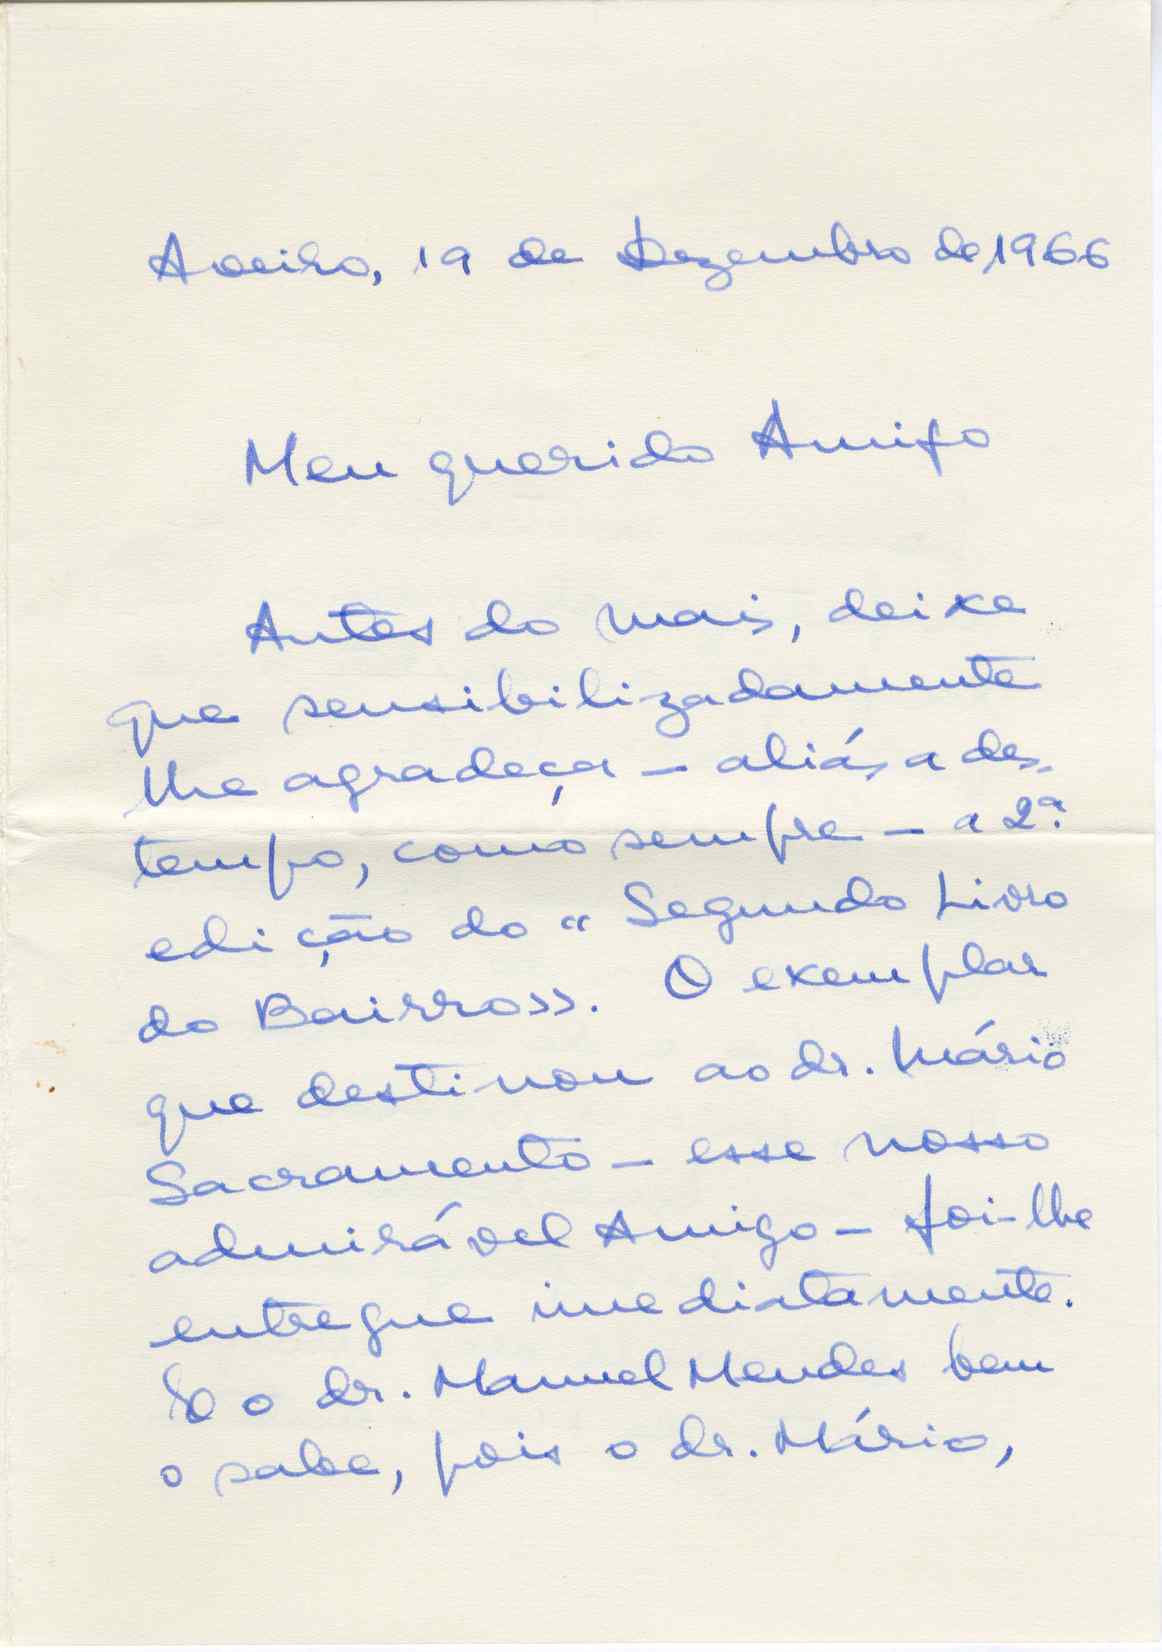 Aveiro, 19 de Dezembro de 1966
Meu querido Amigo
Antes do mais, deixe
que sensibilizadamente
lhe agradeça — aliás a des-
tempo, como sempre — a 2ª.
edição do «Segundo Livro
do Bairro». O exemplar
que destinou ao dr. Mário
Sacramento — esse nosso
admirável Amigo — foi-lhe
entregue imediatamente.
o dr. Manuel Mendes bem
o sabe, pois o dr. Mário,